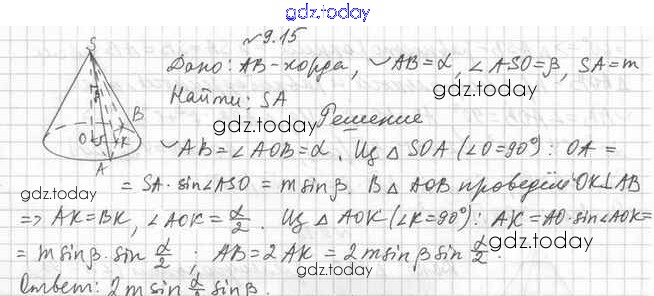 gdz.today
№9.15
Дано: AB-хорда, ◡AB=α, ∠ASO=β, SA=m
Найти: SA
gdz.today
Решение
S
β
B
O
K
A
◡AB=∠AOB=α. Из △SOA (∠O=90°): OA=
gdz.today
=SA·sin∠ASO=m sinβ. В △AOB проведём OK⊥AB
=> AK=BK, ∠AOK=α/2. Из △AOK (∠K=90°): AK=AO·sin∠AOK=
gdz.today
=m sinβ·sin α/2; AB=2AK=2m sinβ sin α/2.
gdz.today
Ответ: 2m sin α/2 sinβ.